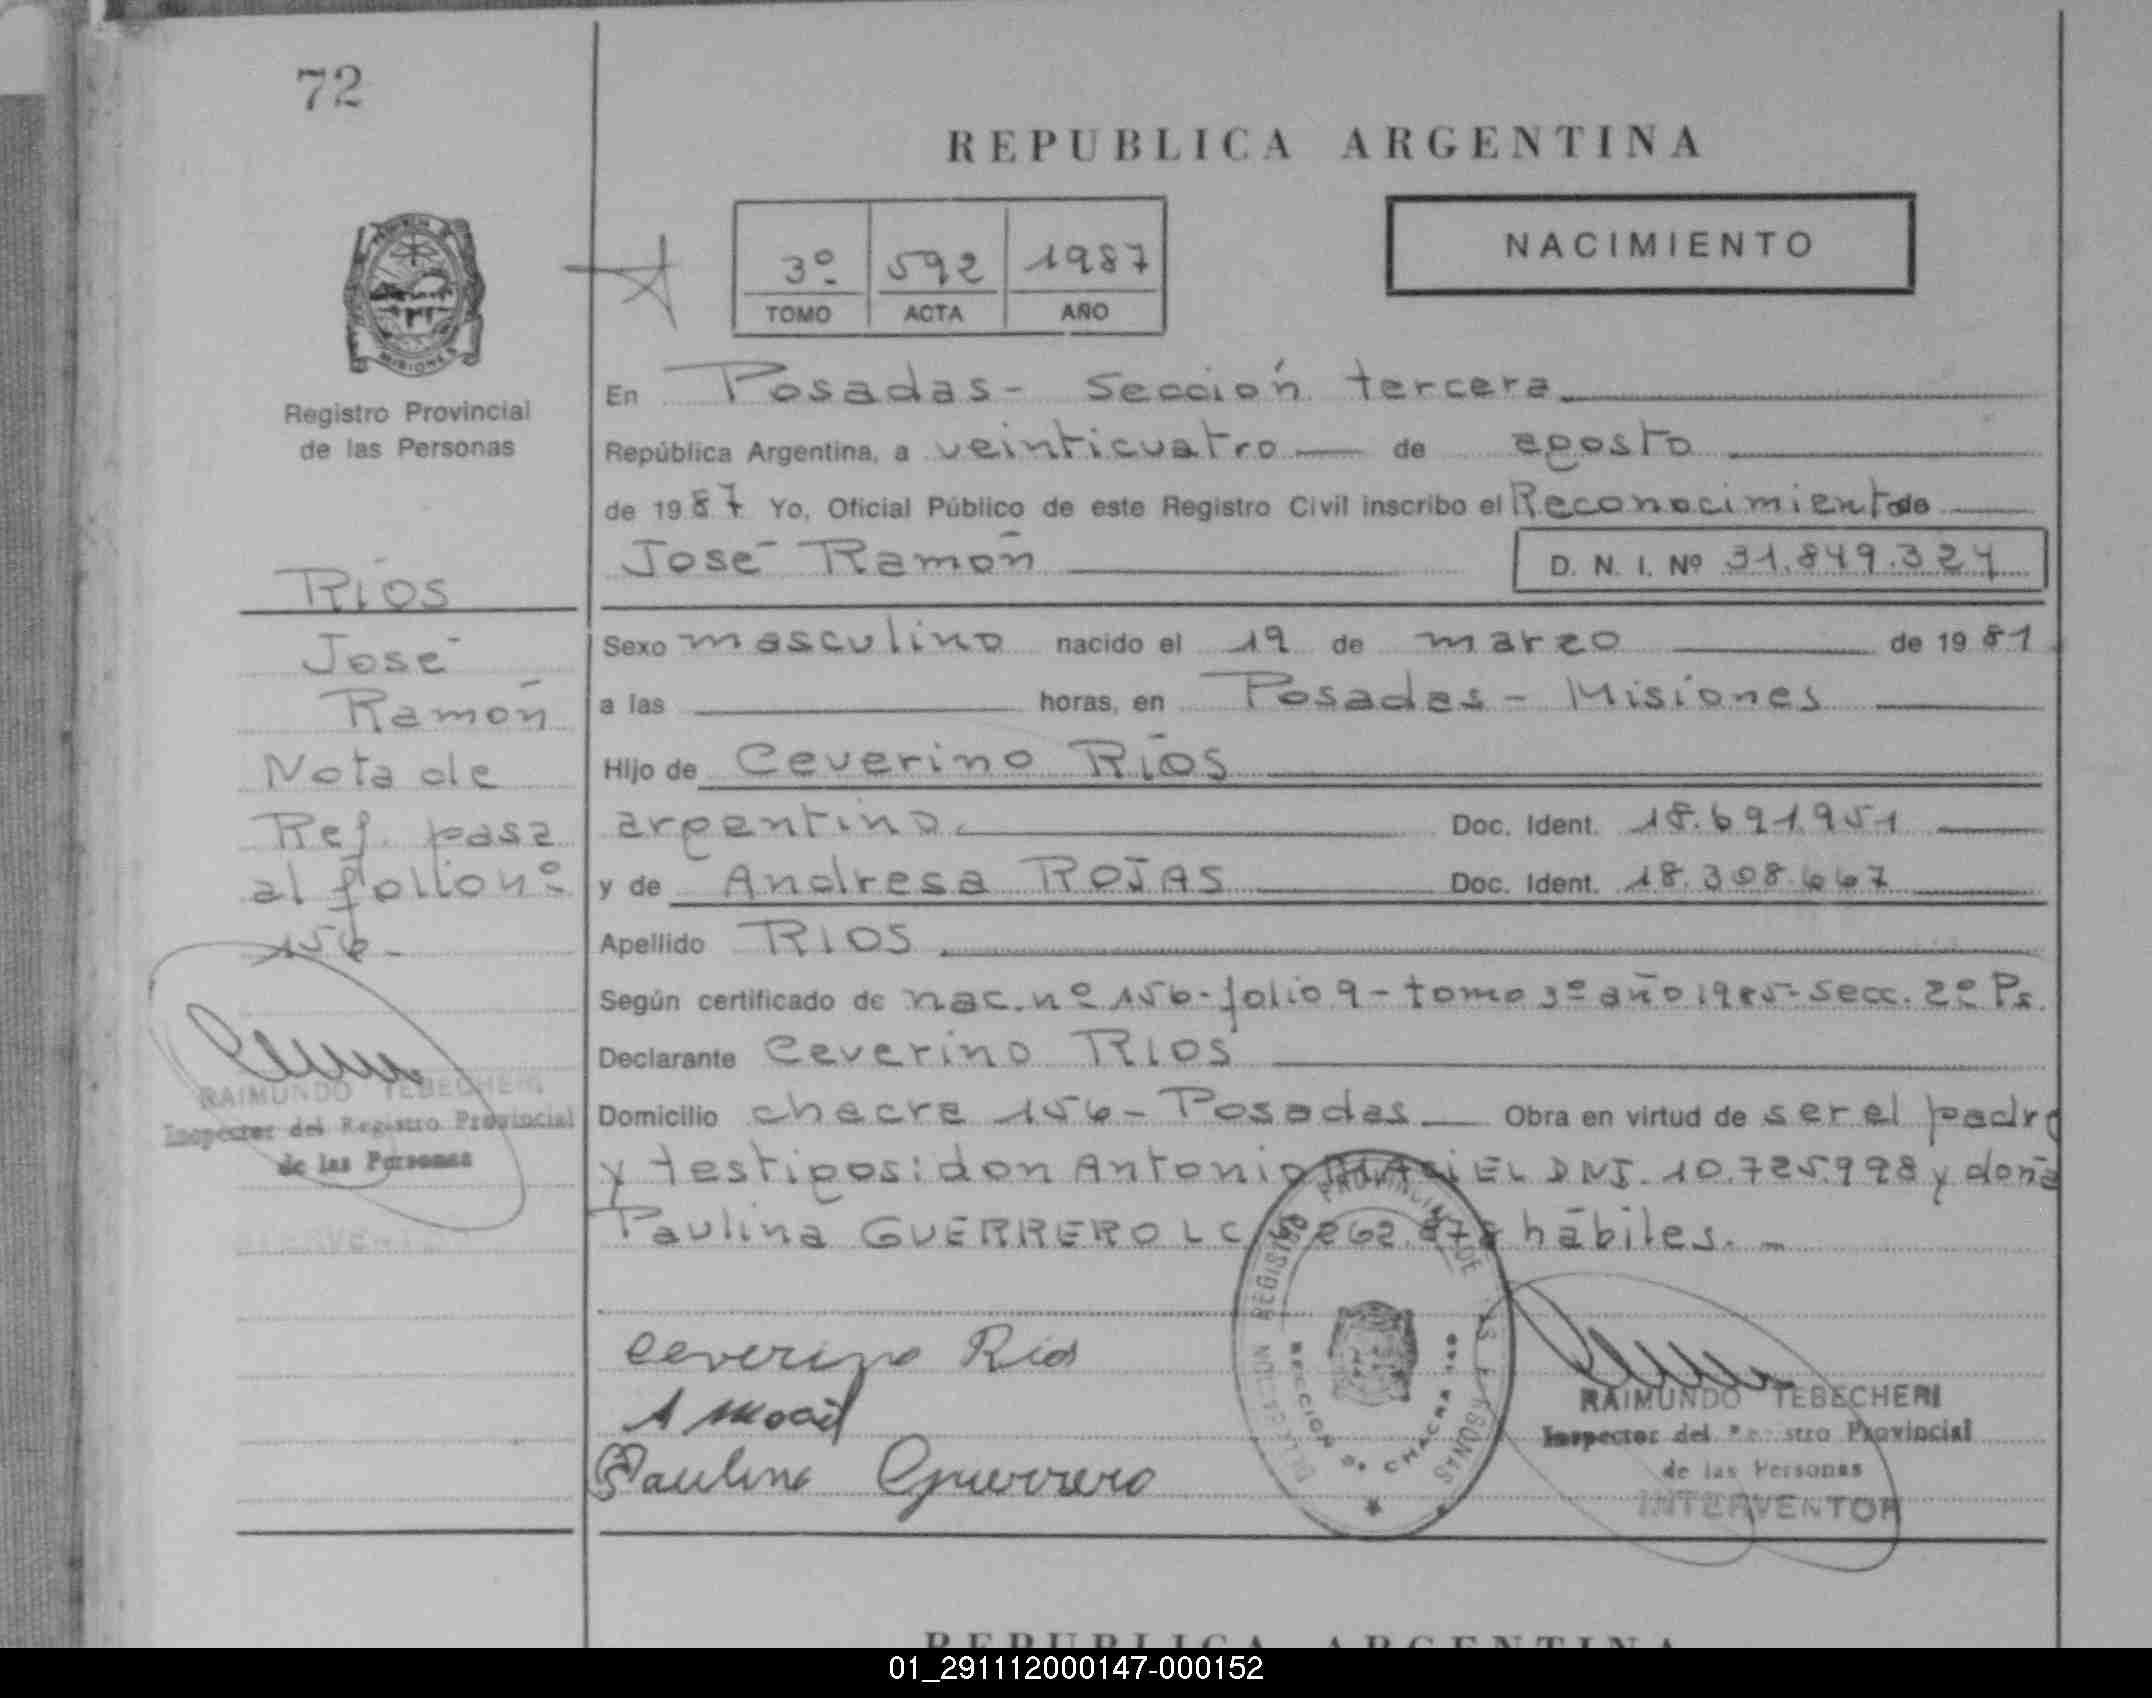 72
REPUBLICA ARGENTINA
3º 592 1987
TOMO ACTA AÑO
NACIMIENTO
MISIONES
Registro Provincial
de las Personas
En Posadas - Sección tercera
República Argentina, a veinticuatro de agosto
de 1987 Yo, Oficial Público de este Registro Civil inscribo el Reconocimiento de
José Ramón D. N. I. Nº 31.849.327
Ríos
José
Ramón
Nota de
Ref. pasa
al folio nº
156 -
Sexo masculino nacido el 19 de marzo de 1981
a las horas, en Posadas - Misiones
Hijo de Ceverino Ríos
argentino. Doc. Ident. 18.691.951
y de Andresa ROJAS Doc. Ident. 18.308.667
Apellido RIOS
Según certificado de nac. nº 156 - folio 9 - tomo 3º año 1985 - secc. 2º Ps.
Declarante Ceverino RIOS
Domicilio chacra 156 - Posadas Obra en virtud de ser el padre
y testigos: don Antonio MACIEL DNI. 10.725.998 y doña
Paulina GUERRERO L C 262.878 hábiles. -
RAIMUNDO TEBECHERI
Inspector del Registro Provincial
de las Personas
Ceverino Rios
Paulina Guerrero
REGISTRO PROVINCIAL DE LAS PERSONAS
DELEGACION
SECCION CHACRA
RAIMUNDO TEBECHERI
Inspector del Registro Provincial
de las Personas
INTERVENTOR
REPUBLICA ARGENTINA
01_291112000147-000152